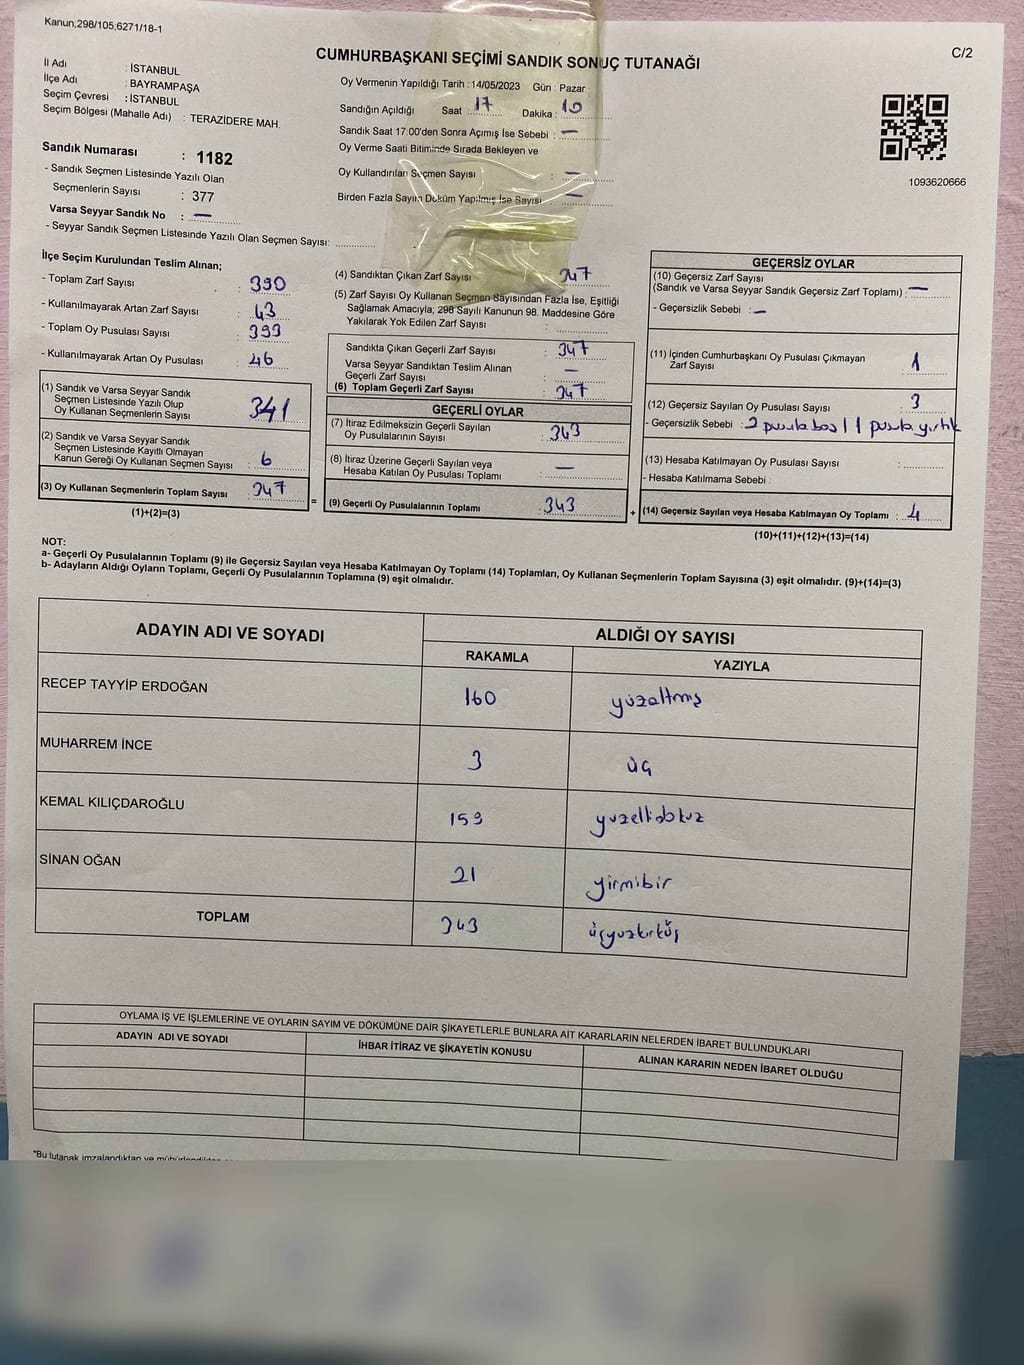 Kanun;298/105;6271/18-1
C/2
CUMHURBAŞKANI SEÇİMİ SANDIK SONUÇ TUTANAĞI
İl Adı : İSTANBUL
İlçe Adı : BAYRAMPAŞA
Seçim Çevresi : İSTANBUL
Seçim Bölgesi (Mahalle Adı) : TERAZİDERE MAH.
Sandık Numarası : 1182
- Sandık Seçmen Listesinde Yazılı Olan
Seçmenlerin Sayısı : 377
Varsa Seyyar Sandık No : —
- Seyyar Sandık Seçmen Listesinde Yazılı Olan Seçmen Sayısı:
Oy Vermenin Yapıldığı Tarih : 14/05/2023 Gün : Pazar
Sandığın Açıldığı Saat : 17 Dakika : 10
Sandık Saat 17:00'den Sonra Açımış İse Sebebi : —
Oy Verme Saati Bitiminde Sırada Bekleyen ve
Oy Kullandırılan Seçmen Sayısı : —
Birden Fazla Sayım Döküm Yapılmış İse Sayısı : —
1093620666
İlçe Seçim Kurulundan Teslim Alınan;
- Toplam Zarf Sayısı : 390
- Kullanılmayarak Artan Zarf Sayısı : 43
- Toplam Oy Pusulası Sayısı : 393
- Kullanılmayarak Artan Oy Pusulası : 46
(1) Sandık ve Varsa Seyyar Sandık
Seçmen Listesinde Yazılı Olup
Oy Kullanan Seçmenlerin Sayısı : 341
(2) Sandık ve Varsa Seyyar Sandık
Seçmen Listesinde Kayıtlı Olmayan
Kanun Gereği Oy Kullanan Seçmen Sayısı : 6
(3) Oy Kullanan Seçmenlerin Toplam Sayısı : 347
(1)+(2)=(3)
=
(4) Sandıktan Çıkan Zarf Sayısı : 347
(5) Zarf Sayısı Oy Kullanan Seçmen Sayısından Fazla İse, Eşitliği
Sağlamak Amacıyla; 298 Sayılı Kanunun 98. Maddesine Göre
Yakılarak Yok Edilen Zarf Sayısı :
Sandıkta Çıkan Geçerli Zarf Sayısı : 347
Varsa Seyyar Sandıktan Teslim Alınan
Geçerli Zarf Sayısı : —
(6) Toplam Geçerli Zarf Sayısı : 347
GEÇERLİ OYLAR
(7) İtiraz Edilmeksizin Geçerli Sayılan
Oy Pusulalarının Sayısı : 343
(8) İtiraz Üzerine Geçerli Sayılan veya
Hesaba Katılan Oy Pusulası Toplamı : —
(9) Geçerli Oy Pusulalarının Toplamı : 343
+
GEÇERSİZ OYLAR
(10) Geçersiz Zarf Sayısı
(Sandık ve Varsa Seyyar Sandık Geçersiz Zarf Toplamı) : —
- Geçersizlik Sebebi : —
(11) İçinden Cumhurbaşkanı Oy Pusulası Çıkmayan
Zarf Sayısı : 1
(12) Geçersiz Sayılan Oy Pusulası Sayısı : 3
- Geçersizlik Sebebi : 2 pusula boş / 1 pusula yırtık
(13) Hesaba Katılmayan Oy Pusulası Sayısı :
- Hesaba Katılmama Sebebi :
(14) Geçersiz Sayılan veya Hesaba Katılmayan Oy Toplamı : 4
(10)+(11)+(12)+(13)=(14)
NOT:
a- Geçerli Oy Pusulalarının Toplamı (9) ile Geçersiz Sayılan veya Hesaba Katılmayan Oy Toplamı (14) Toplamları, Oy Kullanan Seçmenlerin Toplam Sayısına (3) eşit olmalıdır. (9)+(14)=(3)
b- Adayların Aldığı Oyların Toplamı, Geçerli Oy Pusulalarının Toplamına (9) eşit olmalıdır.
ADAYIN ADI VE SOYADI ALDIĞI OY SAYISI
RAKAMLA YAZIYLA
RECEP TAYYİP ERDOĞAN 160 yüzaltmış
MUHARREM İNCE 3 üç
KEMAL KILIÇDAROĞLU 159 yüzellidokuz
SİNAN OĞAN 21 yirmibir
TOPLAM 343 üçyüzkırküç
OYLAMA İŞ VE İŞLEMLERİNE VE OYLARIN SAYIM VE DÖKÜMÜNE DAİR ŞİKAYETLERLE BUNLARA AİT KARARLARIN NELERDEN İBARET BULUNDUKLARI
ADAYIN ADI VE SOYADI İHBAR İTİRAZ VE ŞİKAYETİN KONUSU ALINAN KARARIN NEDEN İBARET OLDUĞU
*Bu tutanak imzalandıktan ve